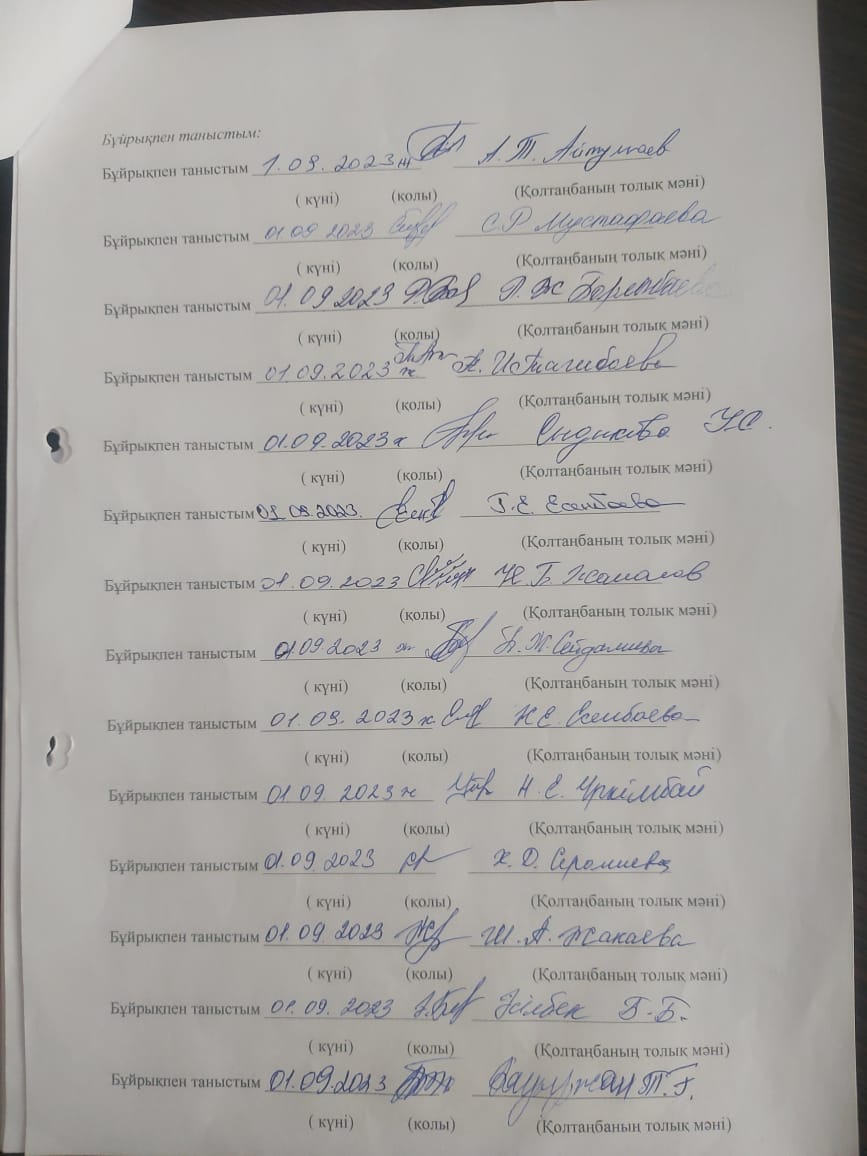 Бұйрықпен таныстым:
Бұйрықпен таныстым 1.09.2023ж А. Т. Айтумаев
( күні) (қолы) (Қолтаңбаның толық мәні)
Бұйрықпен таныстым 01 09 2023 С.Р Мустафаева
( күні) (қолы) (Қолтаңбаның толық мәні)
Бұйрықпен таныстым 01.09.2023
( күні) (қолы) (Қолтаңбаның толық мәні)
Бұйрықпен таныстым 01.09.2023 ж
( күні) (қолы) (Қолтаңбаның толық мәні)
Бұйрықпен таныстым 01.09.2023 ж
( күні) (қолы) (Қолтаңбаның толық мәні)
Бұйрықпен таныстым 01.09.2023. Г.Е. Есенбаева
( күні) (қолы) (Қолтаңбаның толық мәні)
Бұйрықпен таныстым 01.09.2023 Б. Жамалов
( күні) (қолы) (Қолтаңбаның толық мәні)
Бұйрықпен таныстым 01.09.2023 ж Ж. Сейдалиева
( күні) (қолы) (Қолтаңбаның толық мәні)
Бұйрықпен таныстым 01.09.2023 ж Есенбаева
( күні) (қолы) (Қолтаңбаның толық мәні)
Бұйрықпен таныстым 01.09.2023 ж Н. Е. Үркімбай
( күні) (қолы) (Қолтаңбаның толық мәні)
Бұйрықпен таныстым 01.09.2023 Х. Д.
( күні) (қолы) (Қолтаңбаның толық мәні)
Бұйрықпен таныстым 01.09.2023 Ш. А. Жакаева
( күні) (қолы) (Қолтаңбаның толық мәні)
Бұйрықпен таныстым 01.09.2023 Әлбек Б.Б.
( күні) (қолы) (Қолтаңбаның толық мәні)
Бұйрықпен таныстым 01.09.2023 Бауыржан Т.Г.
( күні) (қолы) (Қолтаңбаның толық мәні)